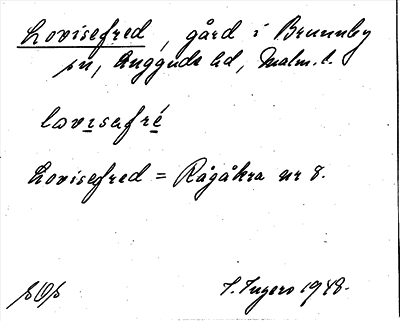 Lovisefred, gård i Brunnby
sn, Luggude hd, Malm. l.
lovisefré
Lovisefred = Rågåkra nr 8.
sOs
I. Ingers 1948.